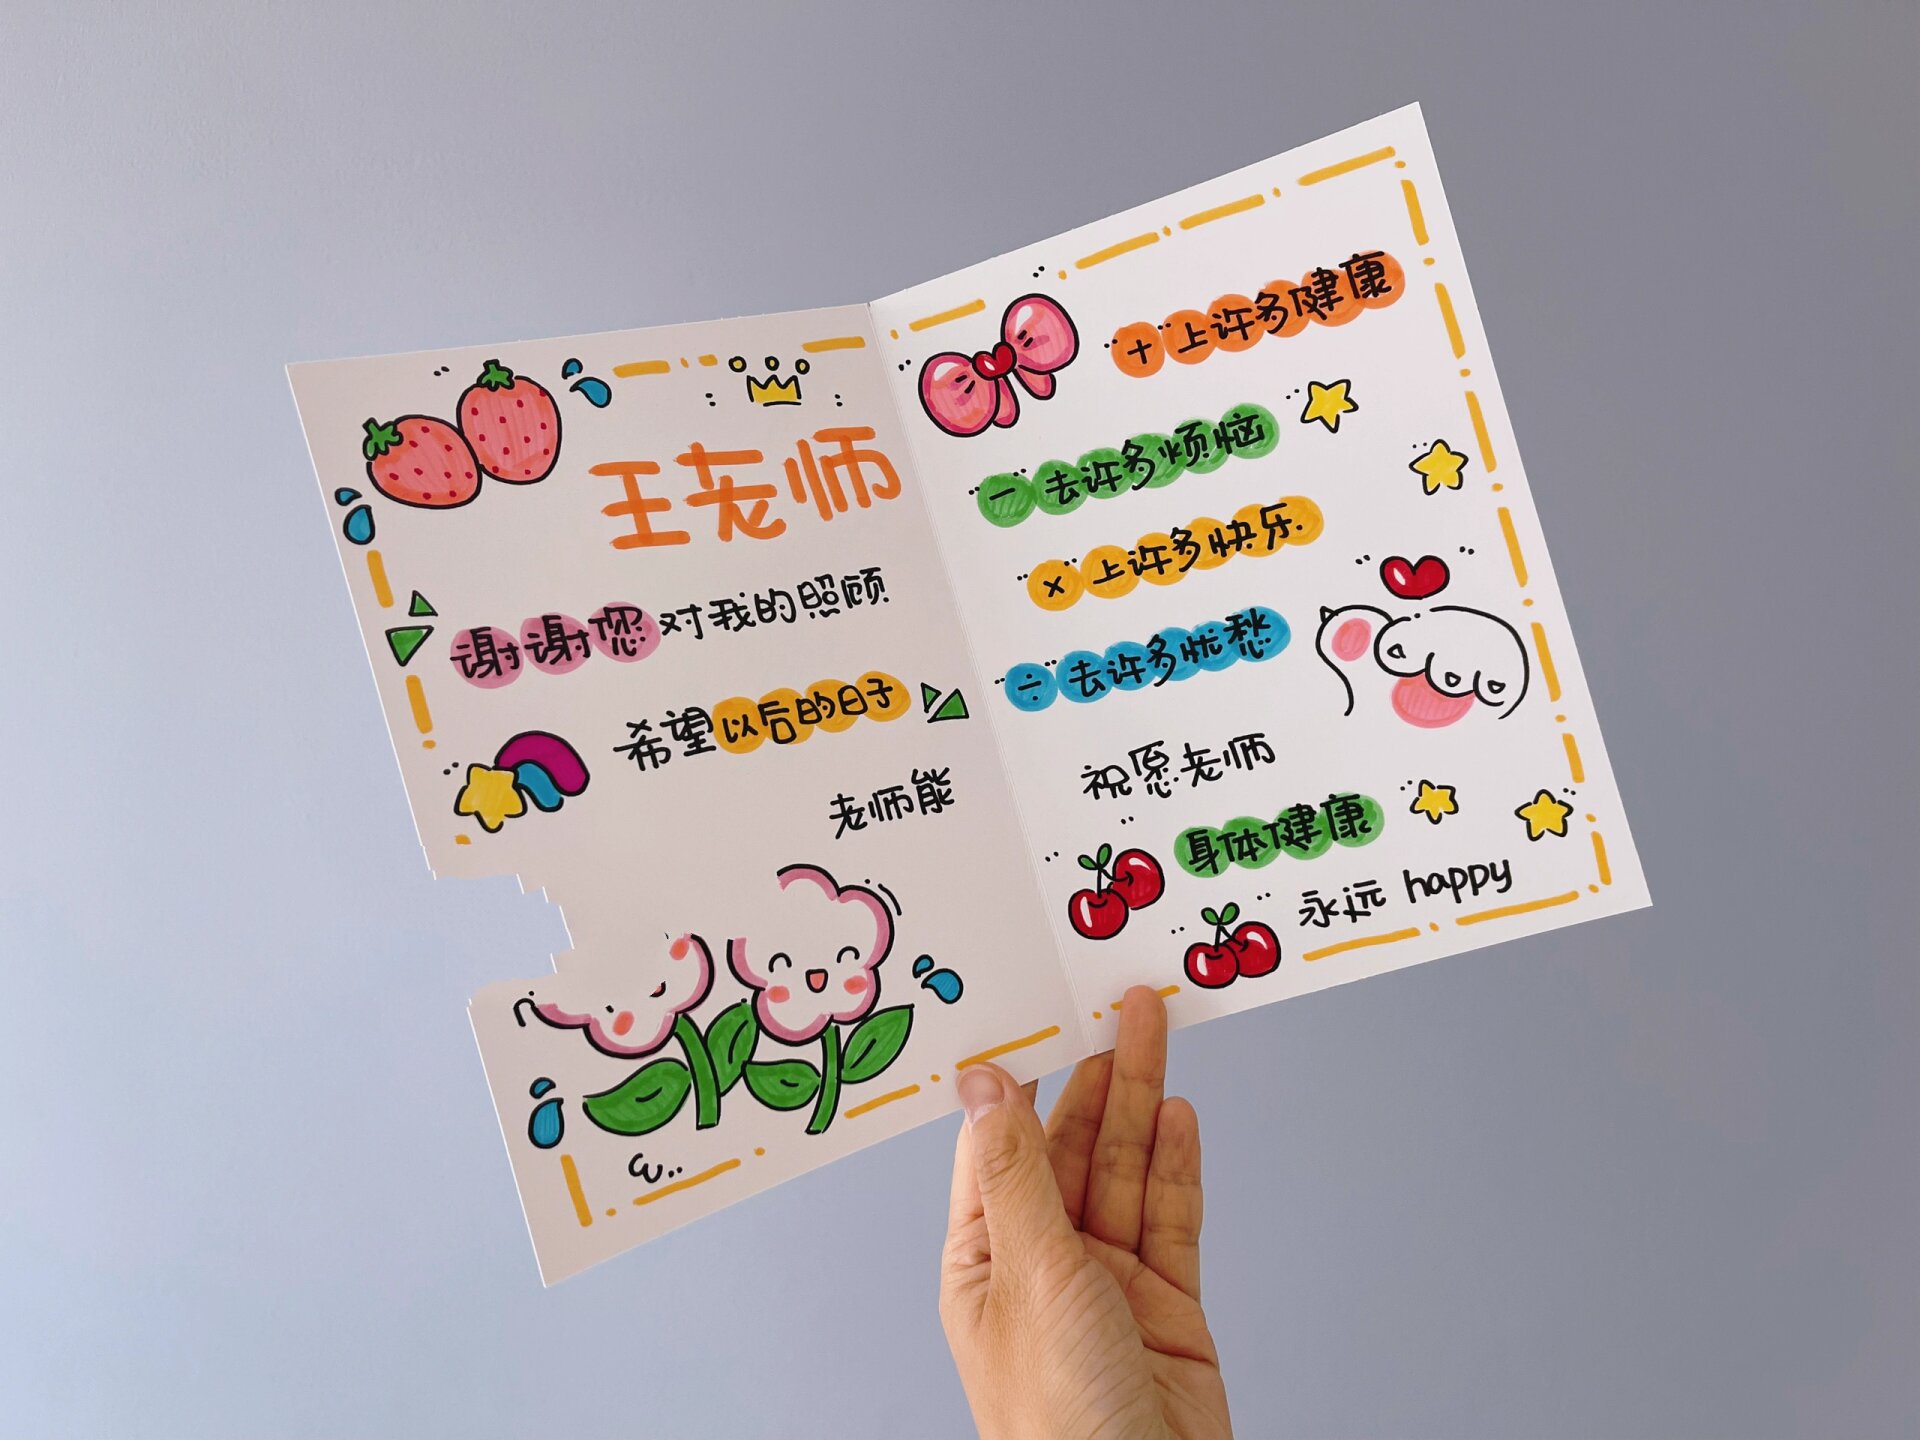 王老师
谢谢您对我的照顾
希望以后的日子
老师能
+上许多健康
-去许多烦恼
×上许多快乐.
÷去许多忧愁
祝愿老师
身体健康
永远 happy